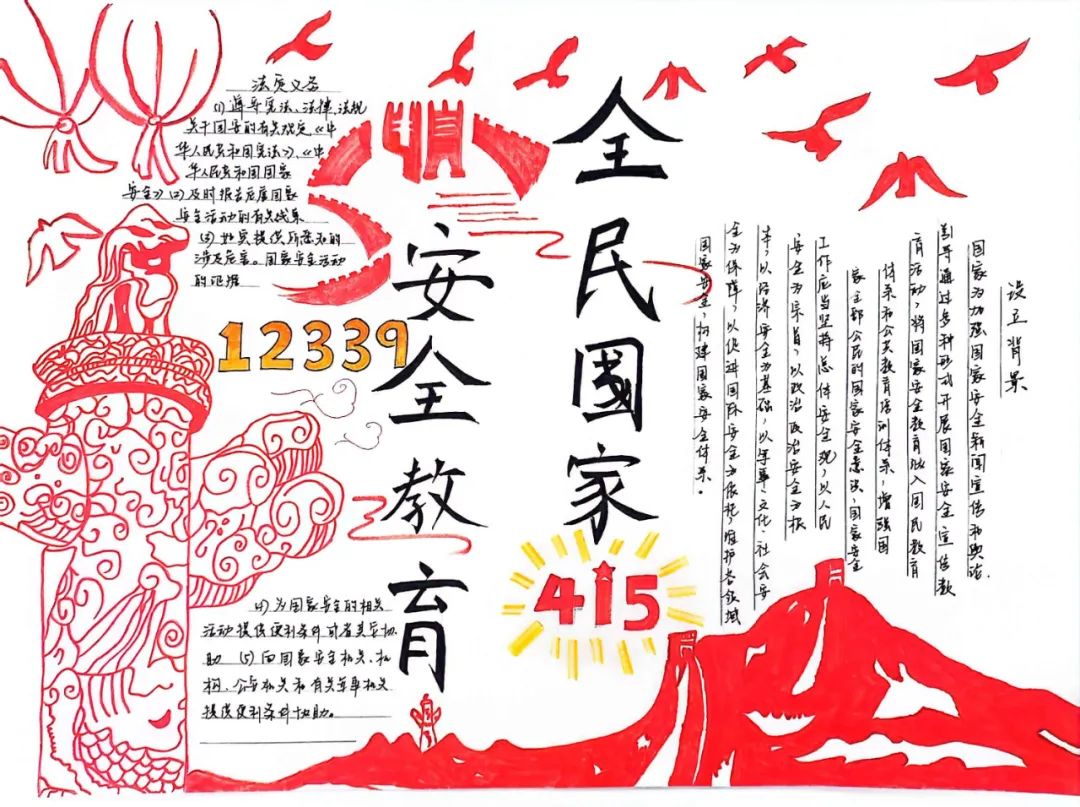 全民國家
安全教育
设立背景
国家为加强国家安全新闻宣传和舆论
引导通过多种形式开展国家安全宣传教
育活动，将国家安全教育纳入国民教育
体系和公共教育培训体系，增强国
家主部公民的国家安全意识，国家安全
工作应当坚持总体安全观，以人民
安全为宗旨，以政治政治安全为根
本，以经济安全为基础，以军事、文化、社会安
全为保障，以促进国际安全为依托，维护各领域
国家安全，构建国家安全体系。
法定义务
(1) 遵守宪法、法律、法规
关于国安的有关规定，《中
华人民共和国宪法》、《中
华人民共和国国家
安全》(2) 及时报告危害国家
安全活动的有关线索
(3) 如实提供所悉知的
涉及危害。国家安全活动
的证据
12339
(4) 为国家安全的相关
活动提供便利条件或者其它协
助 (5) 向国家安全机关、机
构，公安机关和有关军事机关
提供便利条件协助。
415